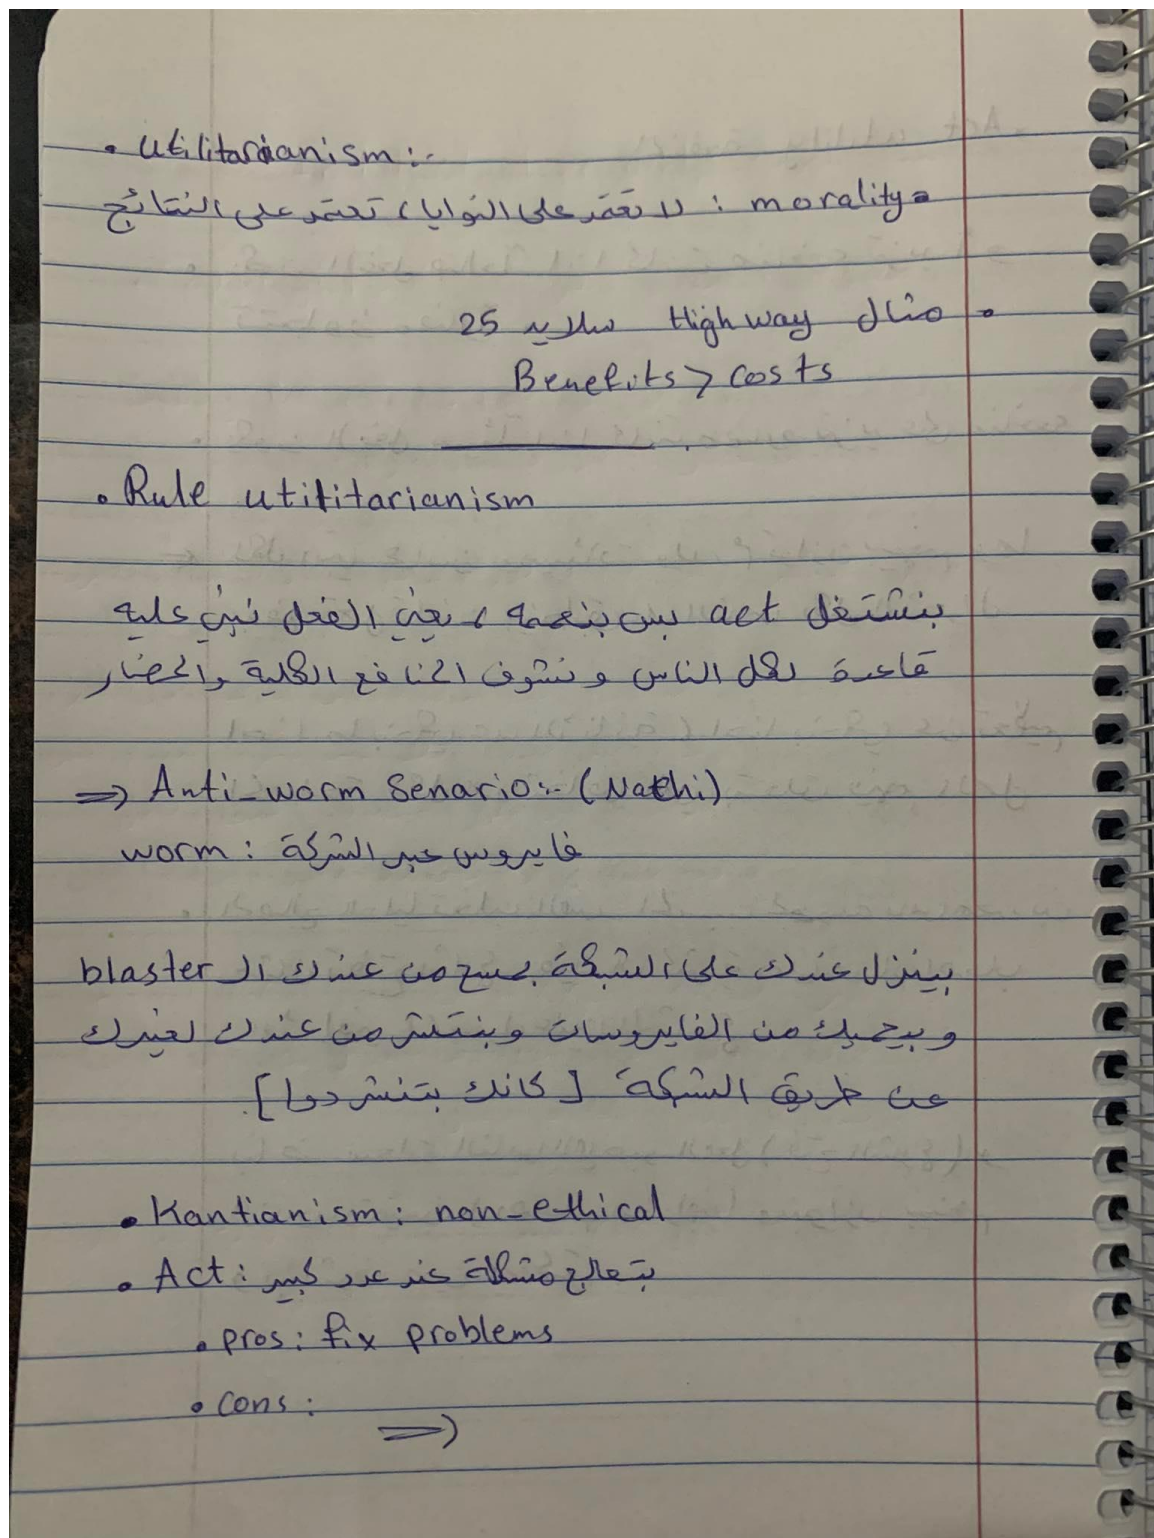 • Utilitarianism :-
• morality : لا تعتمد على النوايا، تعتمد على النتائج
• مثال Highway سلايد 25
Benefits > costs
• Rule utilitarianism
بنشتغل act بس بنعممه، يعني الفعل نبني عليه
قاعدة لكل الناس ونشوف المنافع الكلية والمضار
⇒ Anti-worm Senario:- (Nathi)
worm : فايروس عبر الشبكة
بينزل عندك على الشبكة بمسح من عندك ال blaster
وبيحميك من الفايروسات وبنتشر من عندك لغيرك
عن طريق الشبكة [كانك بتنشر دوا].
• Kantianism : non-ethical
• Act : بتعالج مشكلة عند عدد كبير
• pros : fix problems
• cons :
⇒